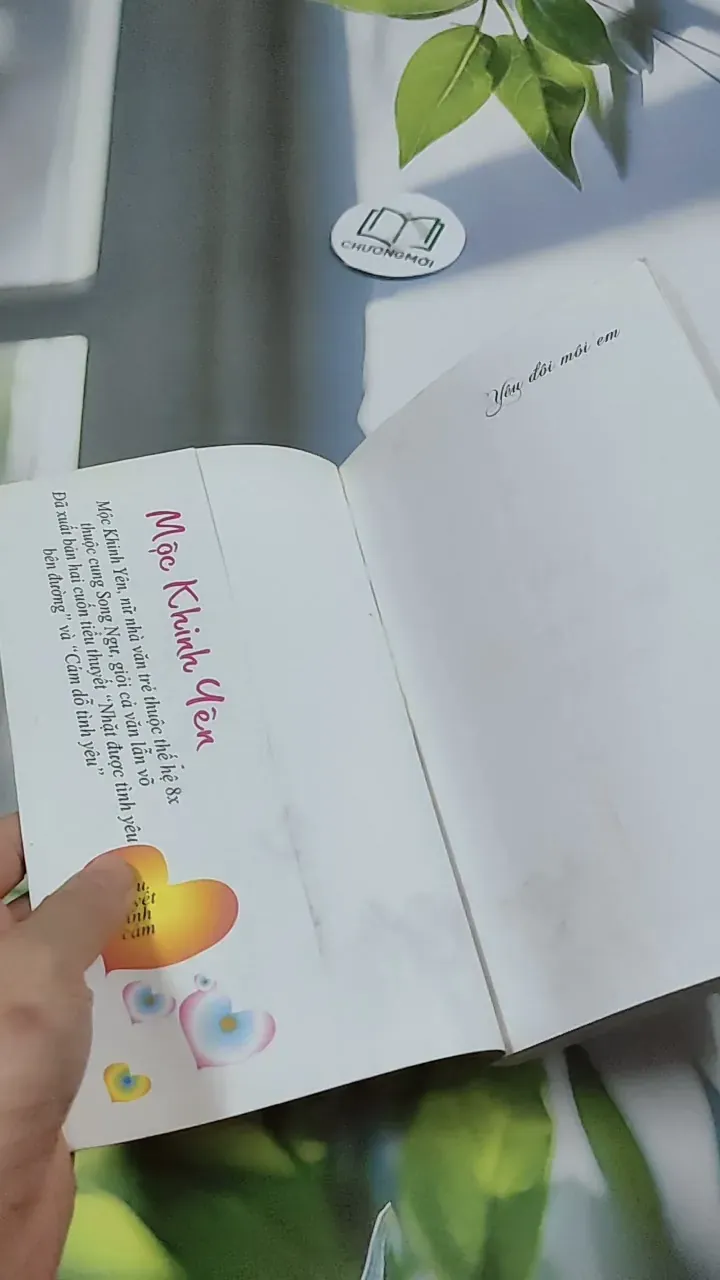 CHƯƠNG MỚI
Yêu đôi môi em
Mộc Khinh Yên
Mộc Khinh Yên, nữ nhà văn trẻ thuộc thế hệ 8x
thuộc cung Song Ngư, giỏi cả văn lẫn võ
Đã xuất bản hai cuốn tiểu thuyết "Nhặt được tình yêu
bên đường" và "Cám dỗ tình yêu"
cảm